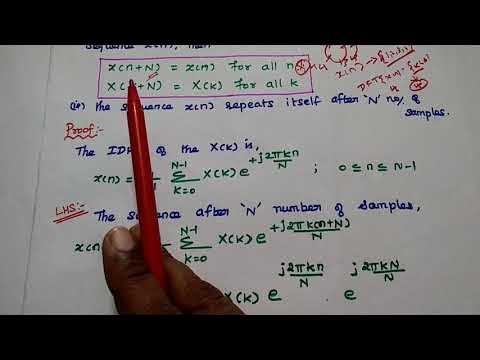 sequence x(n), then
x(n+N) = x(n) for all n
X( + N) = X(k) for all k
(ie) the sequence x(n) repeats itself after 'N' no/. of samples.
Proof:-
The ID of the X(k) is,
x(n) = Σ_{k=0}^{N-1} X(k) e^{+j2πkn/N} ; 0 ≤ n ≤ N-1
LHS:-
The sequence after 'N' number of samples,
x(n Σ_{k=0}^{N-1} X(k) e^{+j2πk(n+N)/N}
X(k) e^{j2πkn/N} . e^{j2πkN/N}